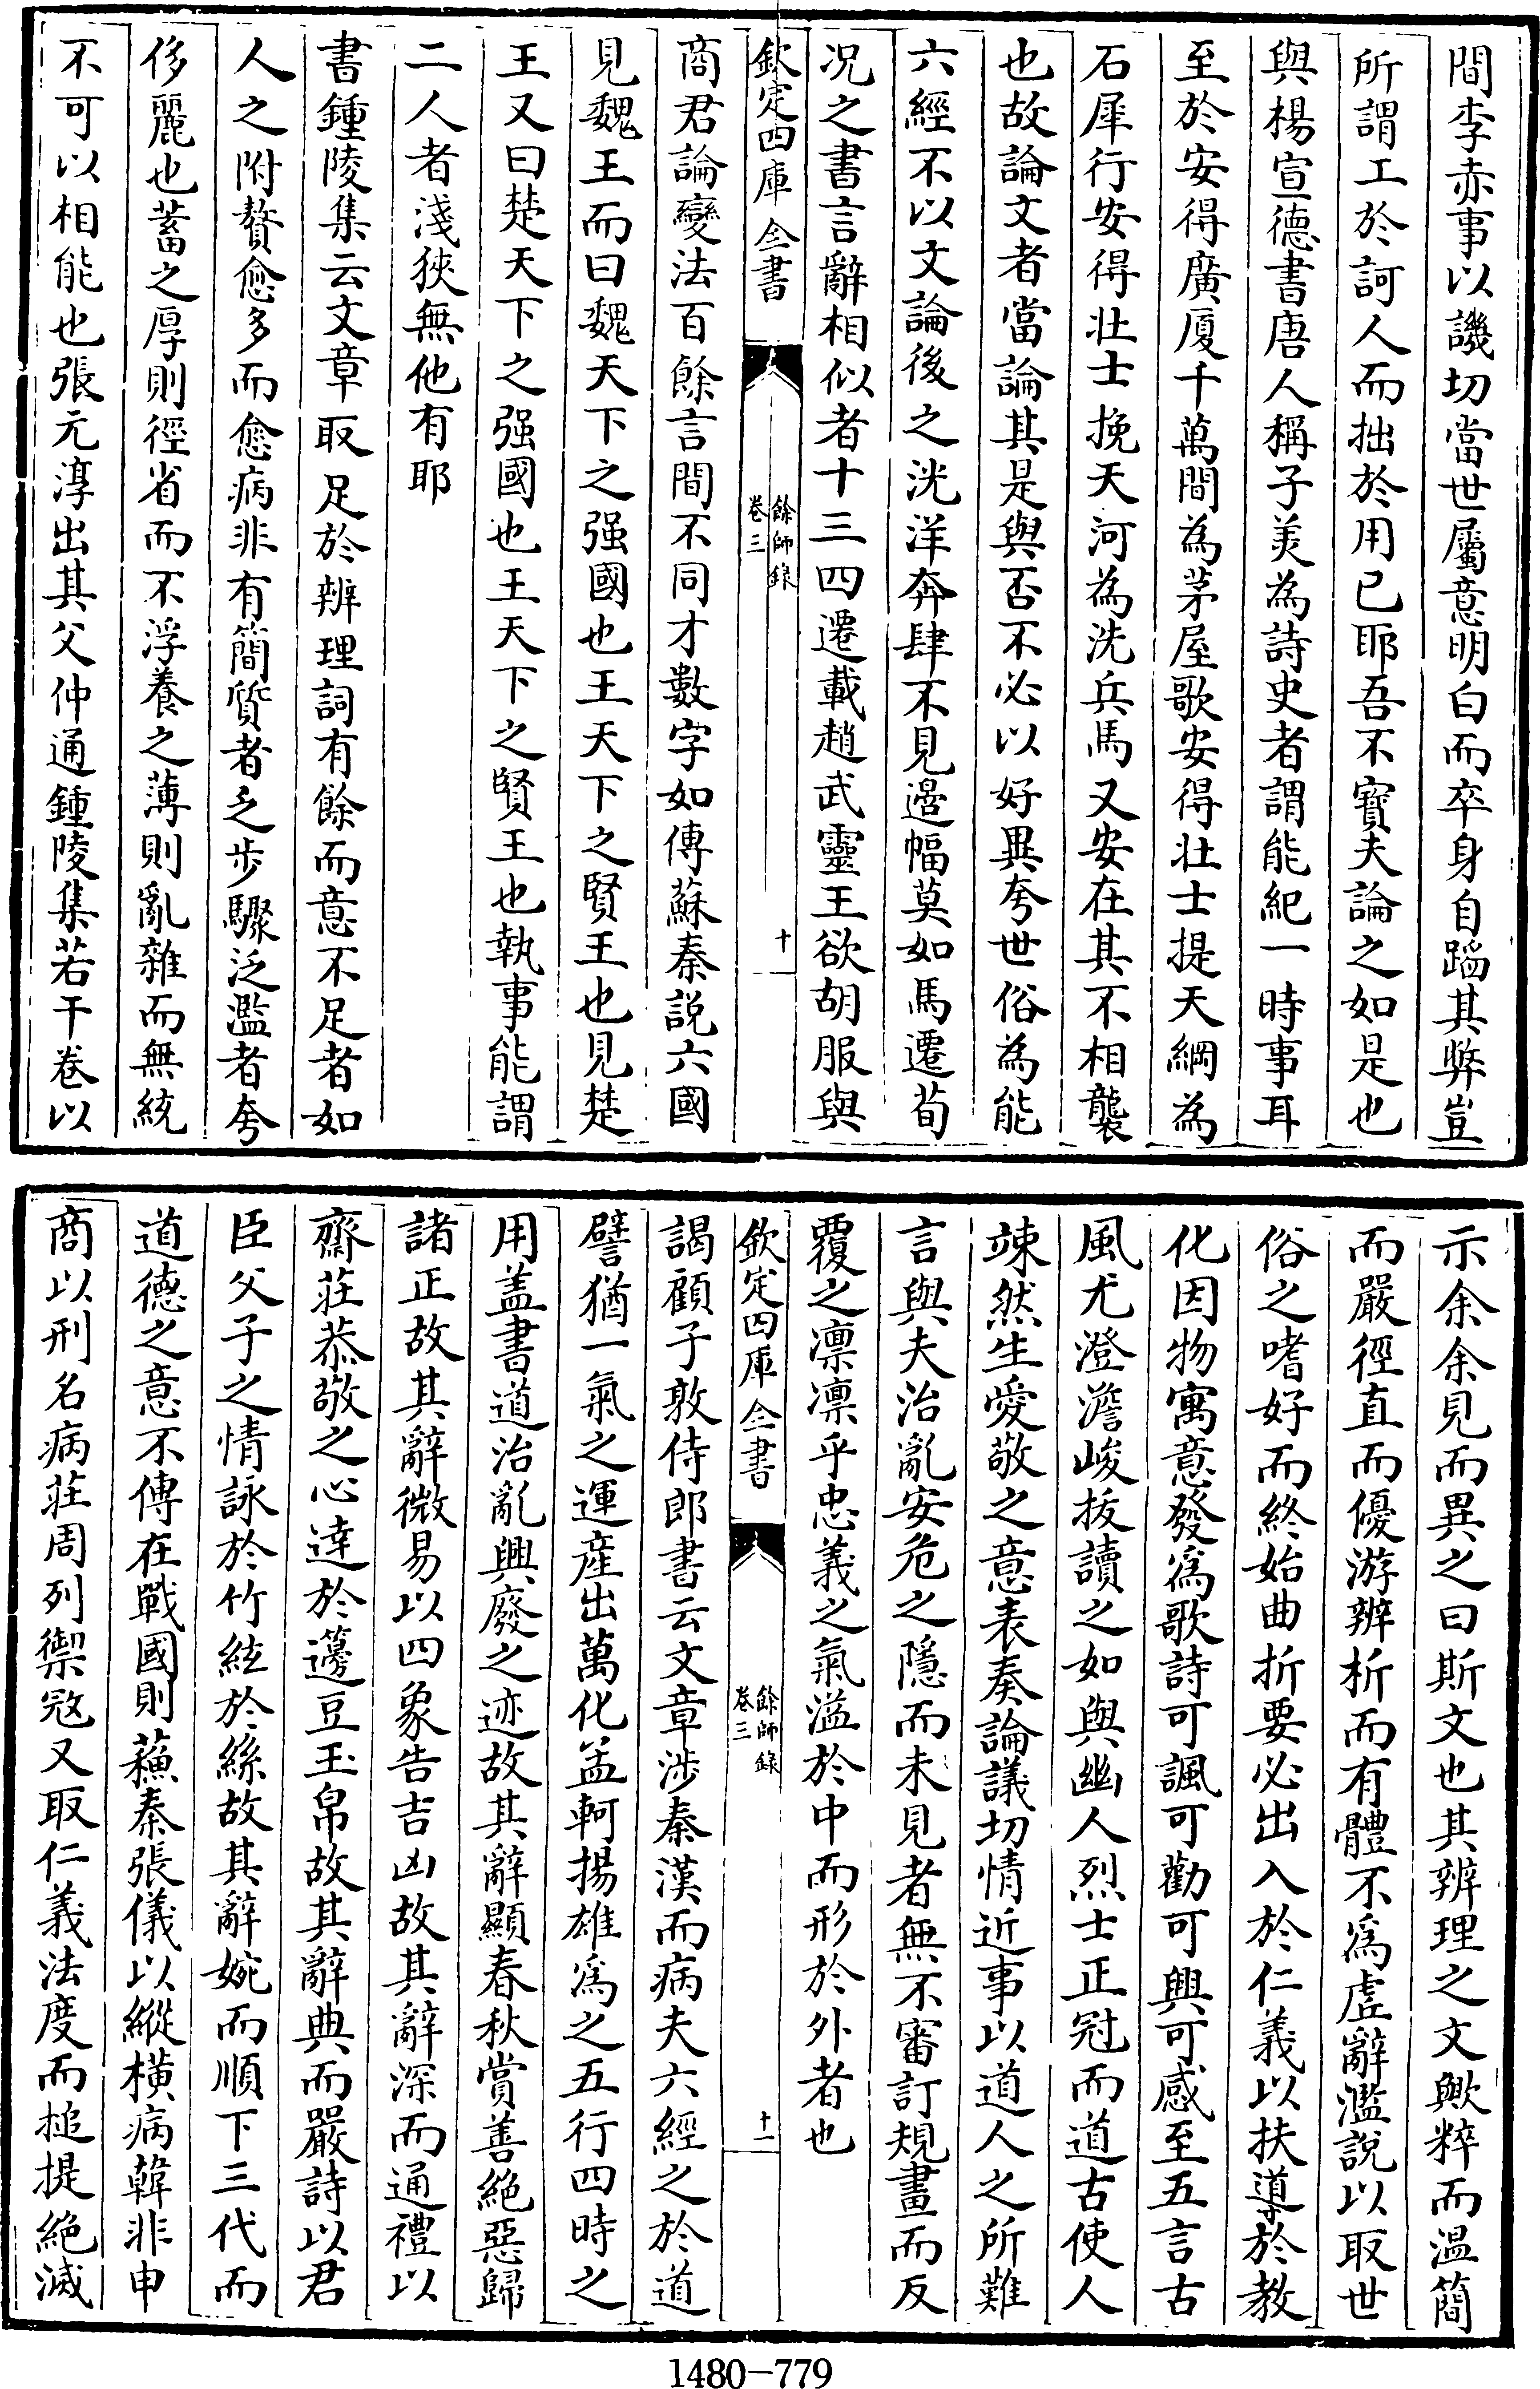 間李赤事以譏切當世屬意明白而卒身自蹈其弊豈
所謂工於訶人而拙於用已耶吾不寳夫論之如是也
與楊宣德書唐人稱子美為詩史者謂能紀一時事耳
至於安得廣厦千萬間為茅屋歌安得壮士提天綱為
石犀行安得壮士挽天河為洗兵馬又安在其不相襲
也故論文者當論其是與否不必以好異夸世俗為能
六經不以文論後之洸洋奔肆不見邉幅莫如馬遷荀
况之書言辭相似者十三四遷載趙武靈王欲胡服與
欽定四庫全書
餘師錄
卷三
十
商君論變法百餘言間不同才數字如傳蘇秦説六國
見魏王而曰魏天下之强國也王天下之賢王也見楚
王又曰楚天下之强國也王天下之賢王也執事能謂
二人者淺狹無他有耶
書鍾陵集云文章取足於辨理詞有餘而意不足者如
人之附贅愈多而愈病非有簡質者之步驟泛濫者夸
侈麗也蓄之厚則徑省而不浮養之薄則亂雜而無統
不可以相能也張元淳出其父仲通鍾陵集若干卷以
示余余見而異之曰斯文也其辨理之文歟粹而温簡
而嚴徑直而優游辨析而有體不爲虛辭濫說以取世
俗之嗜好而終始曲折要必出入於仁義以扶導於教
化因物寓意發爲歌詩可諷可勸可興可感至五言古
風尤澄澹峻拔讀之如與幽人烈士正冠而道古使人
竦然生愛敬之意表奏論議切情近事以道人之所難
言與夫治亂安危之隱而未見者無不審訂規畫而反
覆之凛凛乎忠義之氣溢於中而形於外者也
欽定四庫全書
餘師錄
卷三
十一
謁顧子敦侍郎書云文章涉秦漢而病夫六經之於道
譬猶一氣之運産出萬化孟軻揚雄爲之五行四時之
用盖書道治亂興廢之迹故其辭顯春秋賞善絶惡歸
諸正故其辭微易以四象告吉凶故其辭深而通禮以
齋莊恭敬之心逹於籩豆玉帛故其辭典而嚴詩以君
臣父子之情詠於竹絃於絲故其辭婉而順下三代而
道德之意不傳在戰國則蘓秦張儀以縱橫病韓非申
商以刑名病莊周列禦宼又取仁義法度而搥提絶滅
1480-779